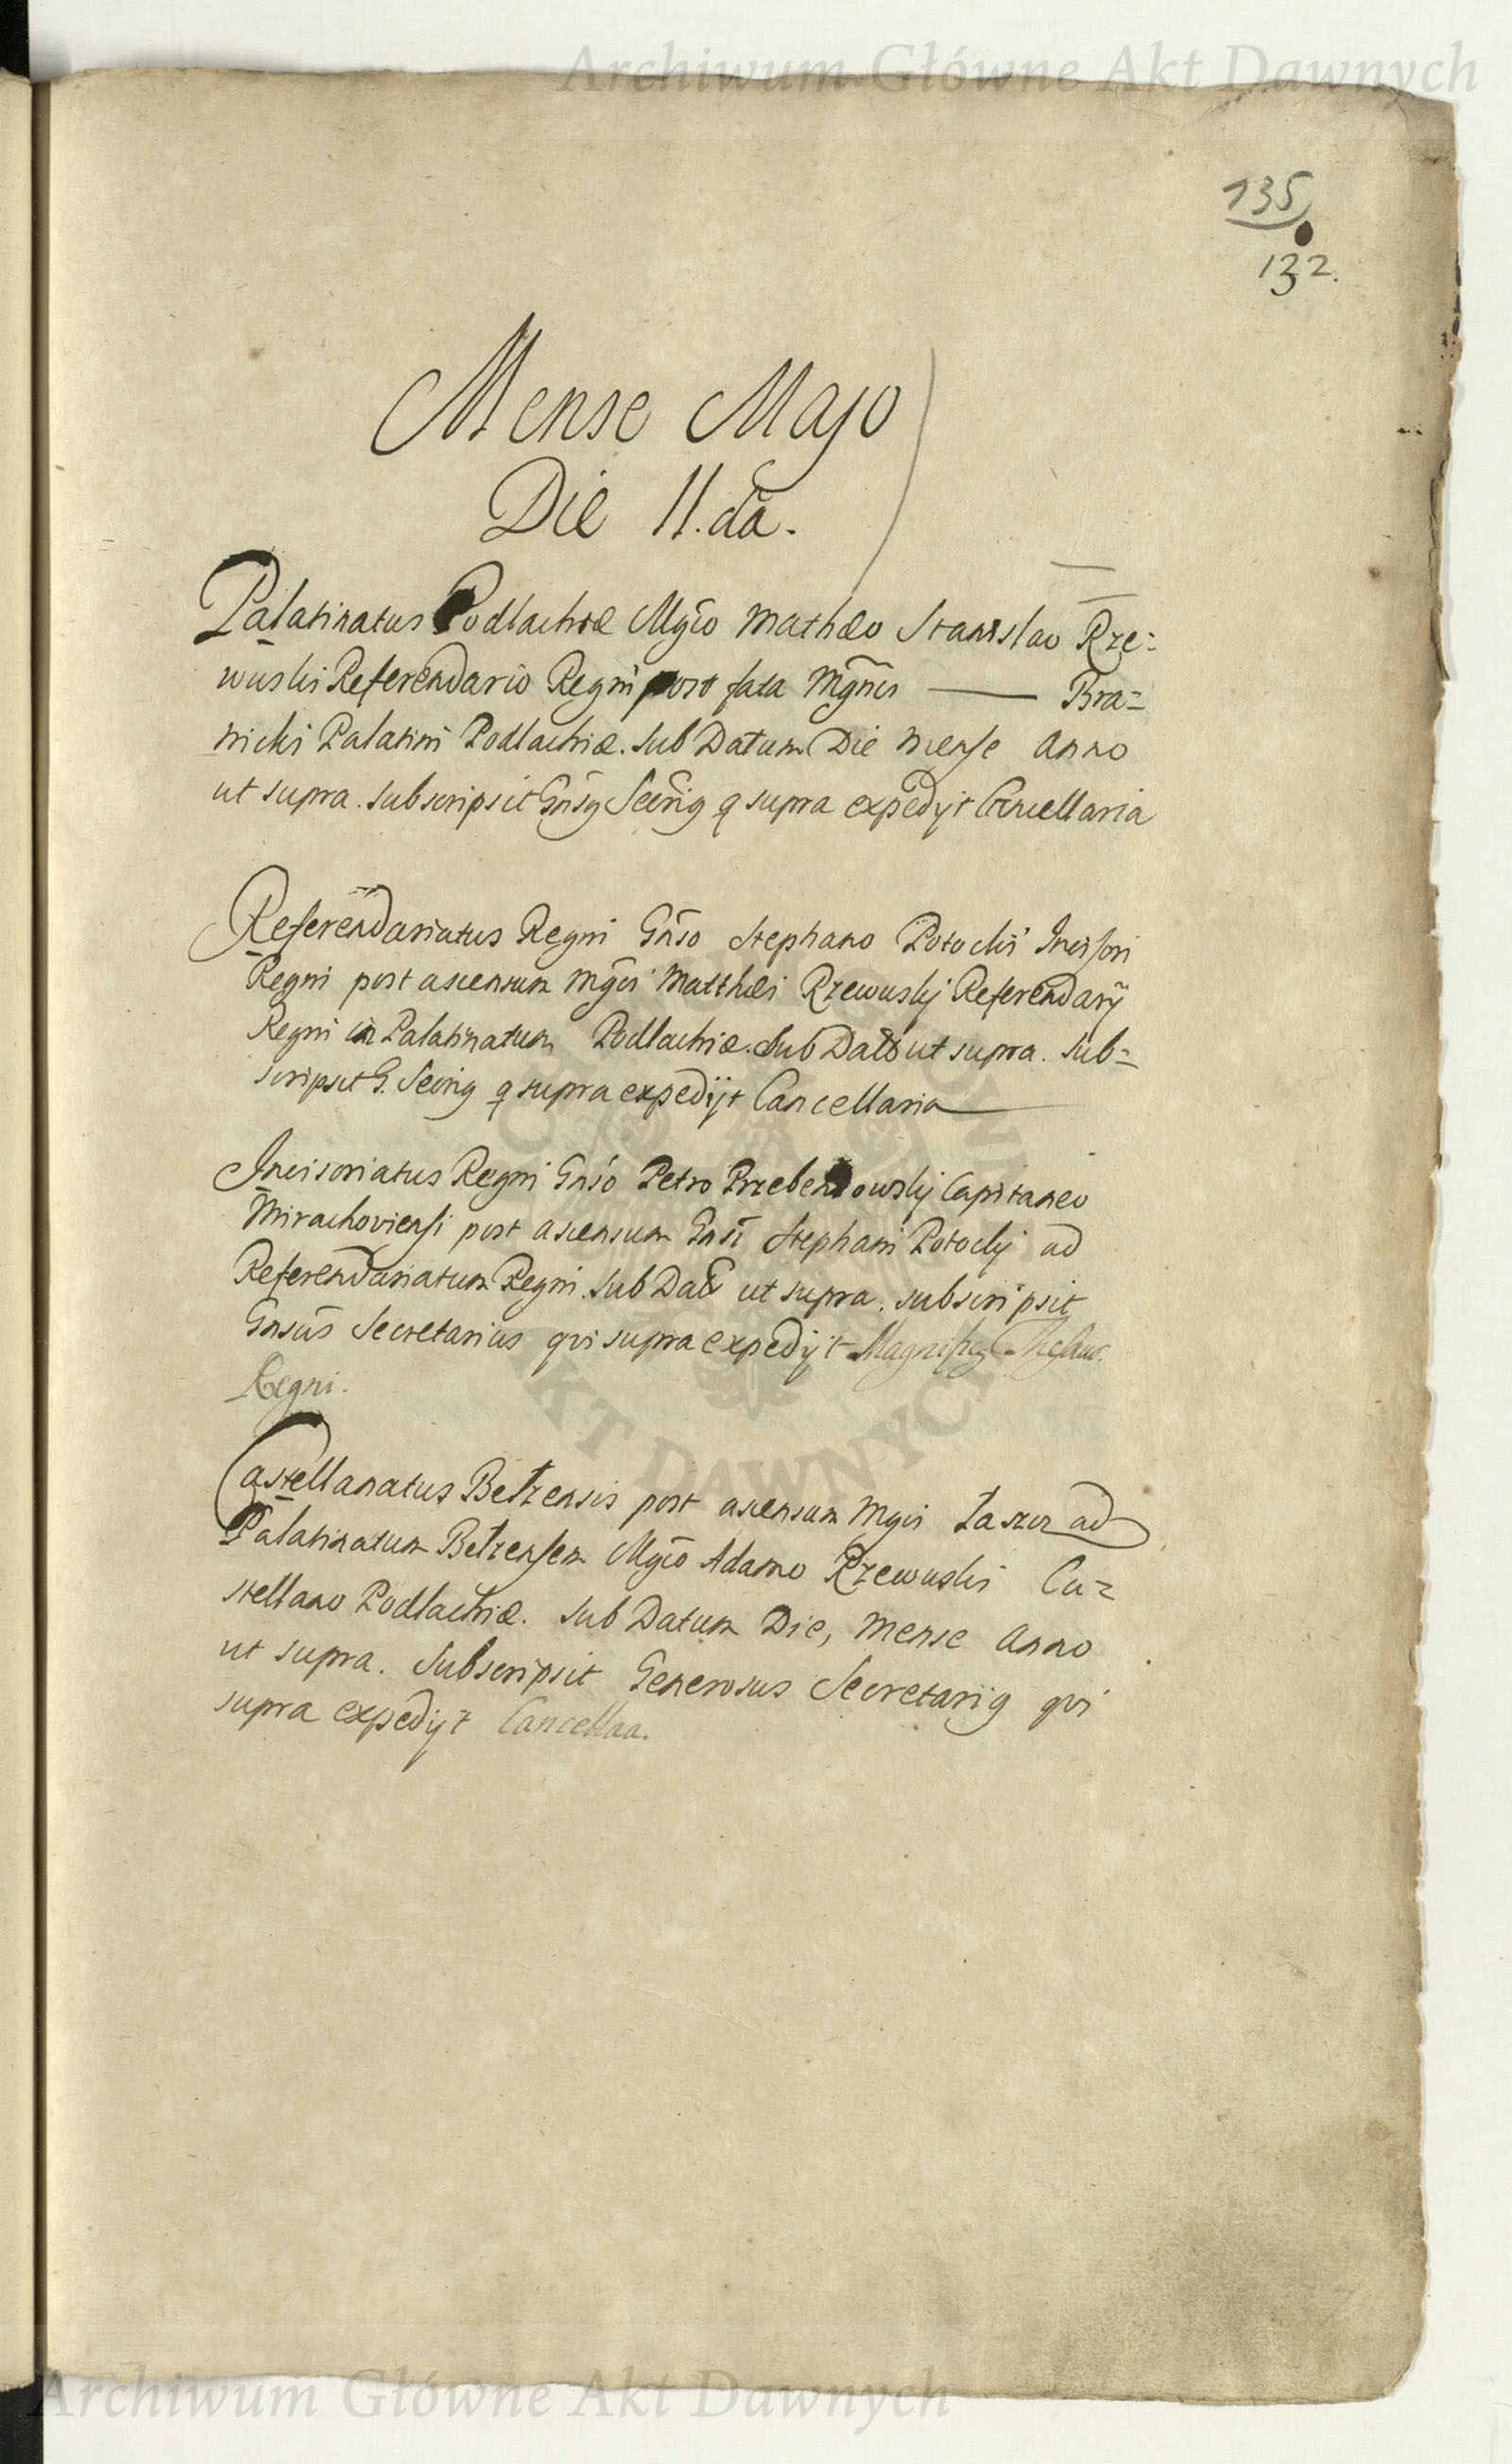 Archiwum Główne Akt Dawnych
135
132.
Mense Majo
Die 11.da.
Palatinatus Podlachiæ Mgco Mathæo Stanislao Rze=
wuski Referendario Regni post fata Mgnci — Bra=
nicki Palatini Podlachiæ. Sub Datum Die Mense Anno
ut supra. subscripsit Gnsg Secrig q supra expedijt Cancellaria
Referendariatus Regni Gnso Stephano Potocki Incisori
Regni post ascensum Mgci Matthæi Rzewuskj Referendarij
Regni in Palatinatum Podlachiæ. Sub Dato ut supra. Sub=
scripsit G. Secrig q supra expedijt Cancellaria
Incisoriatus Regni Gnso Petro Przebendowskj Capitaneo
Mirachoviensi post ascensum Gnsi Stephani Potockj ad
Referendariatum Regni. Sub Dat ut supra. subscripsit
Gnsus Secretarius qvi supra expedijt Magnificg Thesaur.
Regni.
Castellanatus Bełzensis post ascensum Mgci Łaszcz ad
Palatinatum Bełzensem Mgco Adamo Rzewuski Ca=
stellano Podlachiæ. Sub Datum Die, Mense Anno
ut supra. Subscripsit Generosus Secretarig qvi
supra expedijt Cancellaa.
AKT DAWNYCH
Archiwum Główne Akt Dawnych